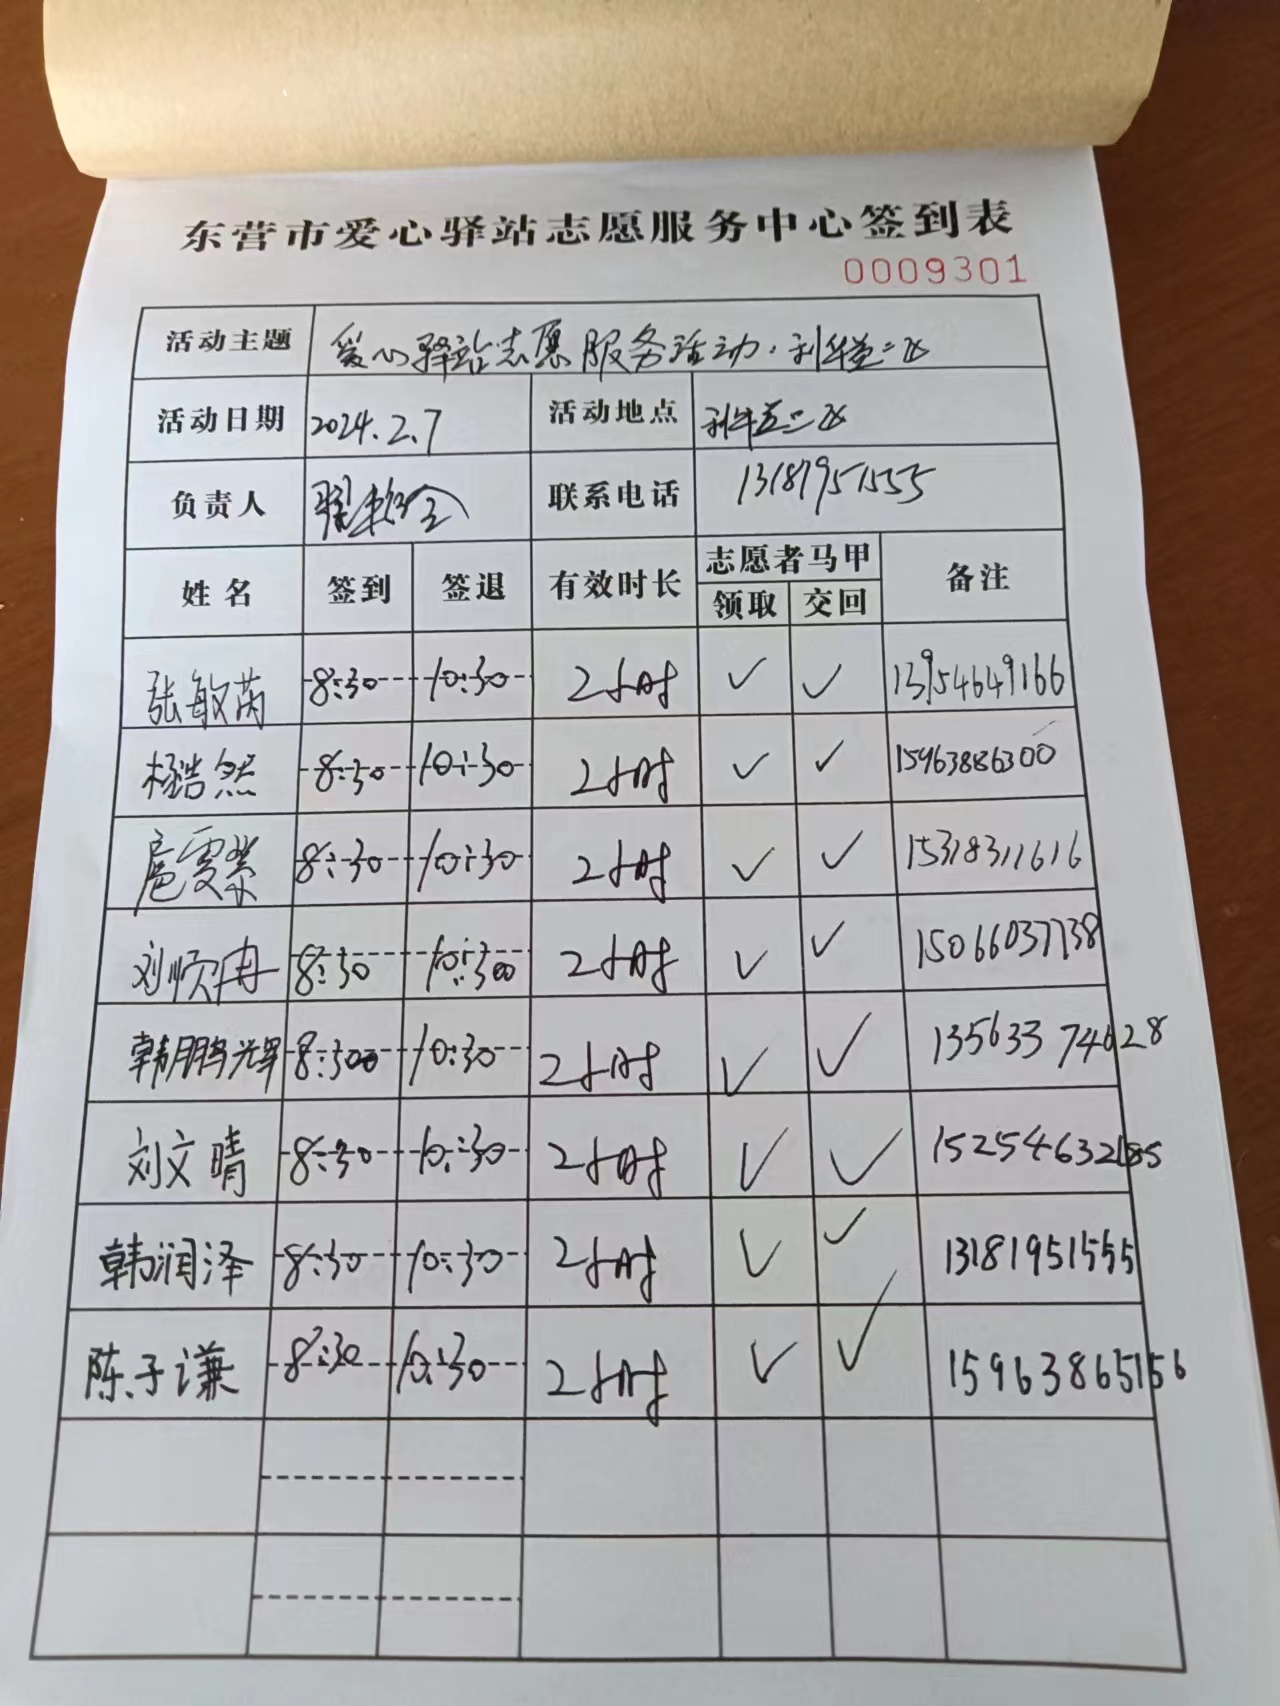 东营市爱心驿站志愿服务中心签到表
0009301
活动主题 爱心驿站志愿服务活动·利华益二区
活动日期 2024.2.7 活动地点 利华益二区
负责人 联系电话 13181951555
姓名 签到 签退 有效时长 志愿者马甲 备注
领取 交回
张敏芮 8:30 10:30 2小时 ✓ ✓ 13954649166
杨浩然 8:30 10:30 2小时 ✓ ✓ 15963886300
扈雯紫 8:30 10:30 2小时 ✓ ✓ 15318311616
刘顺冉 8:30 10:30 2小时 ✓ ✓ 15066037738
韩鹏辉 8:30 10:30 2小时 ✓ ✓ 13563374628
刘文晴 8:30 10:30 2小时 ✓ ✓ 15254632185
韩润泽 8:30 10:30 2小时 ✓ ✓ 13181951555
陈子谦 8:30 10:30 2小时 ✓ ✓ 15963865156